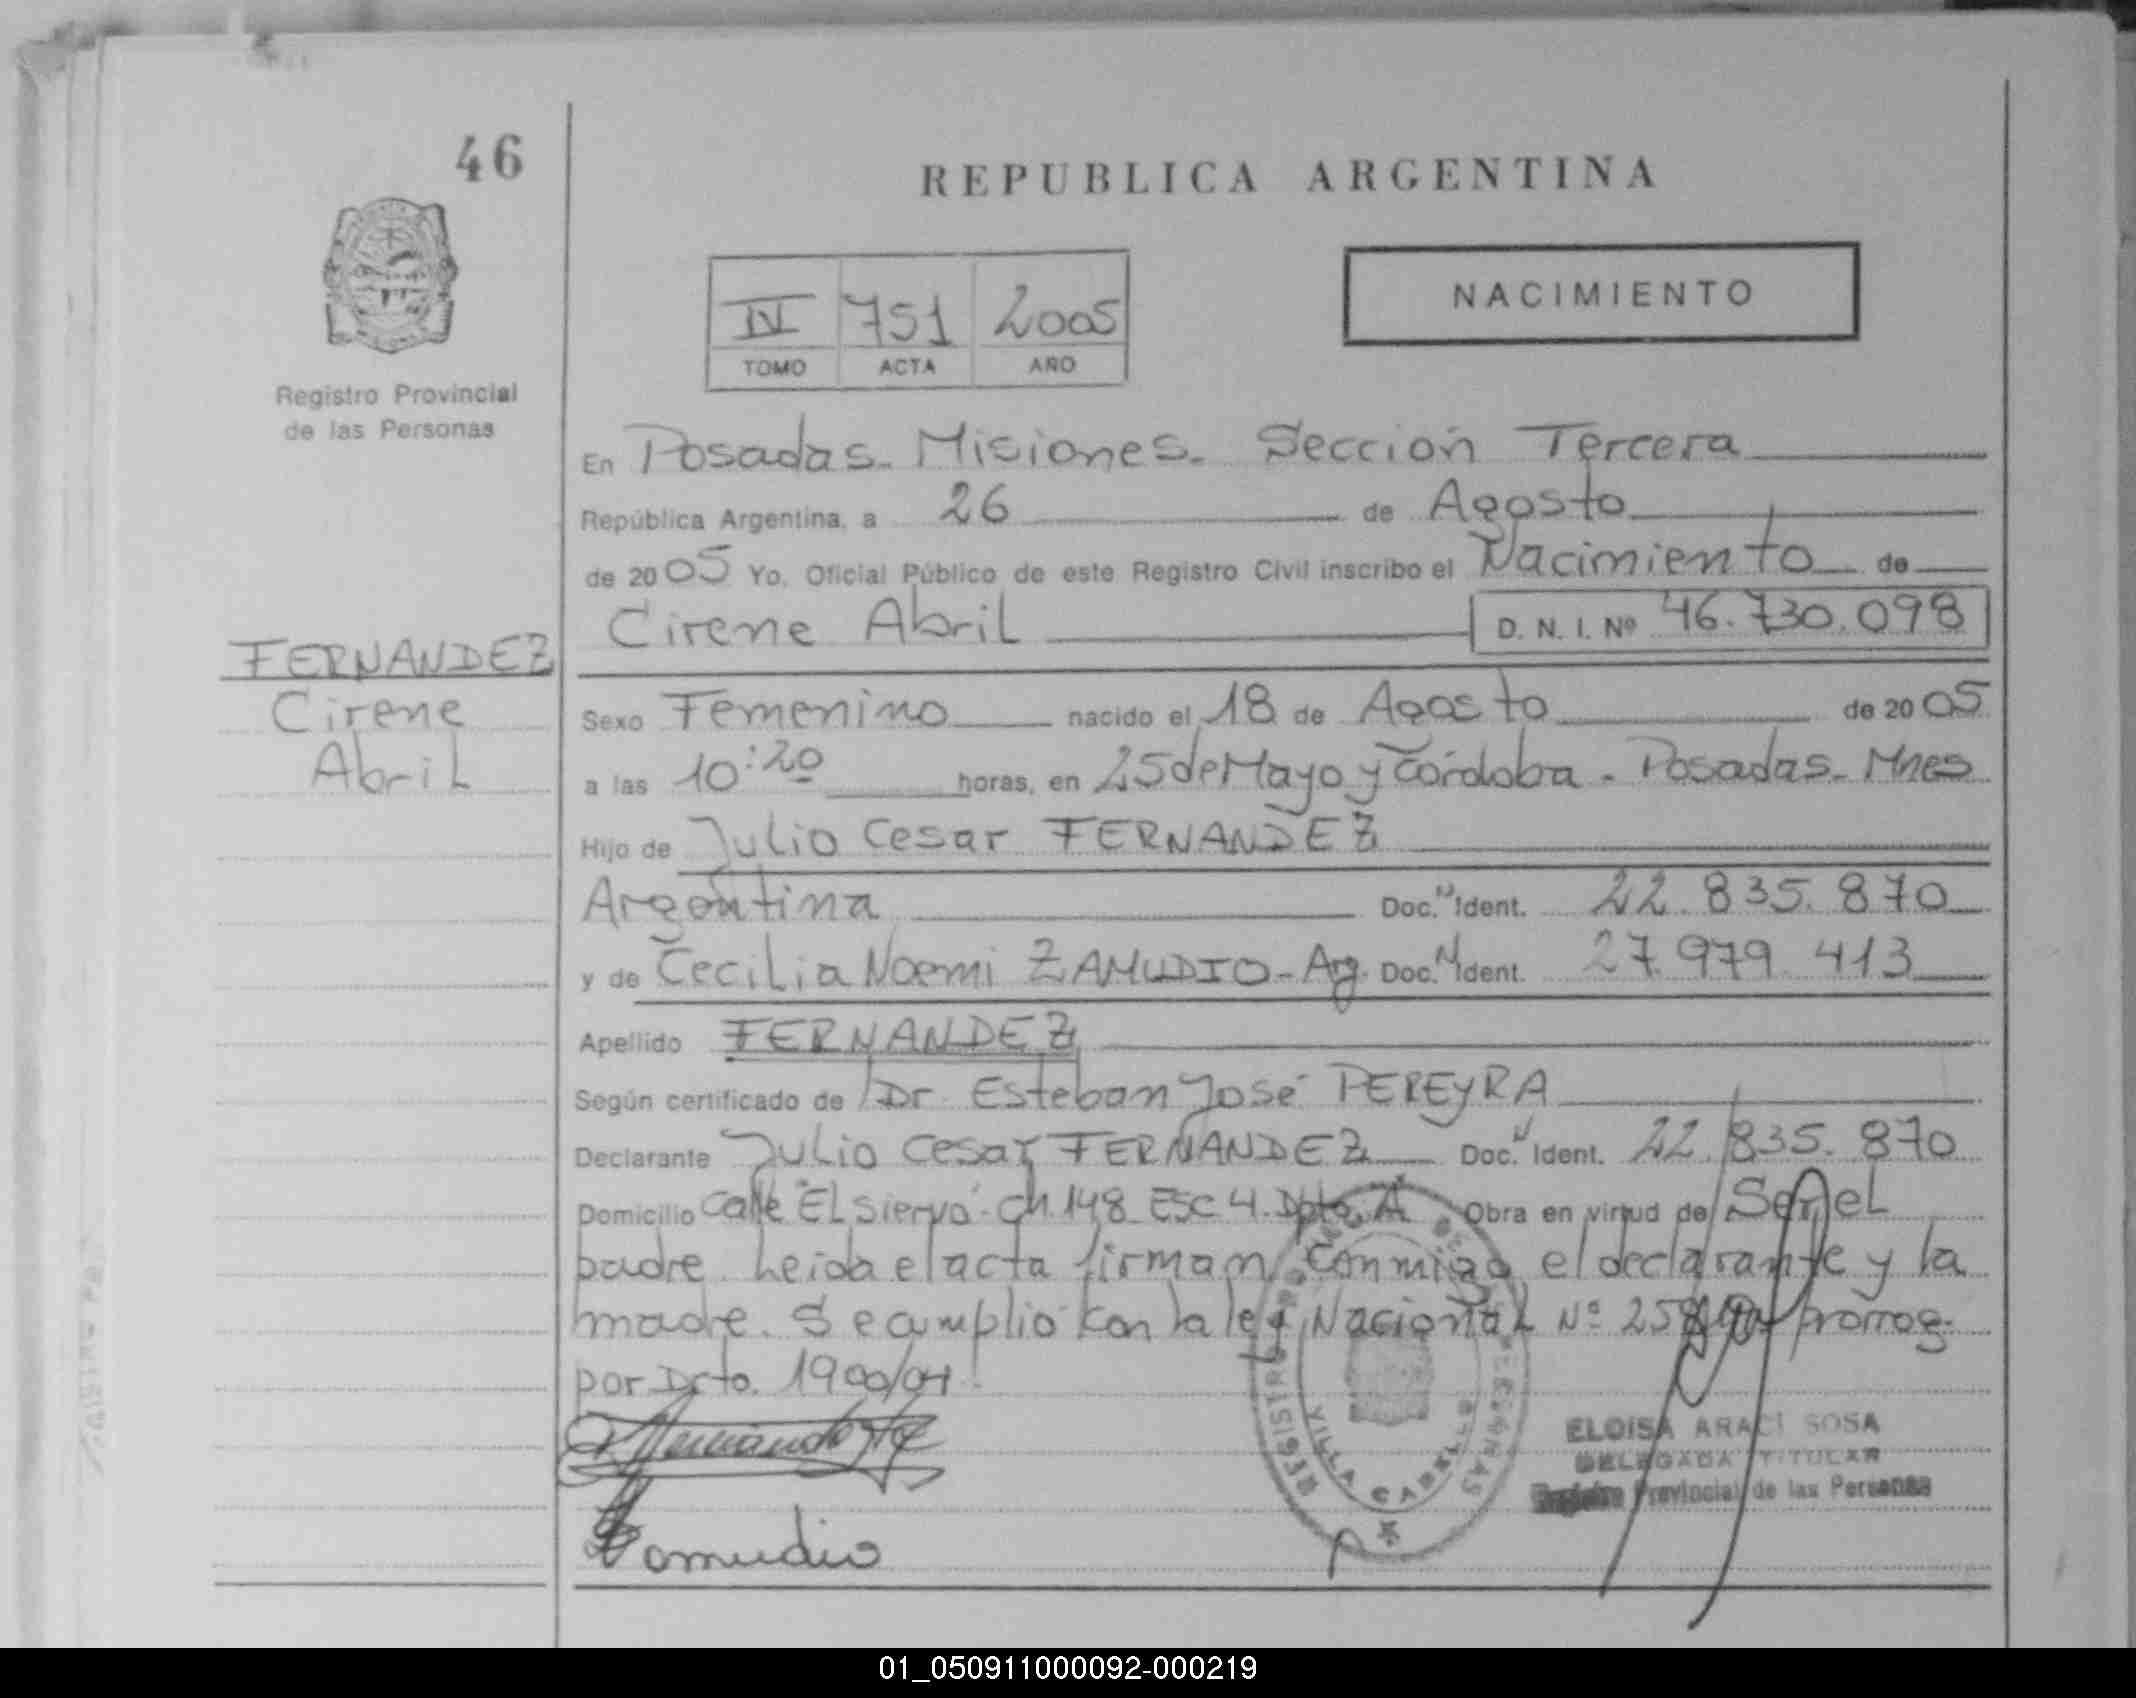 46
REPUBLICA ARGENTINA
IV 751 2005
TOMO ACTA AÑO
NACIMIENTO
Registro Provincial
de las Personas
En Posadas - Misiones - Sección Tercera
República Argentina, a 26 de Agosto
de 2005 Yo, Oficial Público de este Registro Civil inscribo el Nacimiento de
Cirene Abril D. N. I. Nº 46.730.098
FERNANDEZ
Cirene
Abril
Sexo Femenino nacido el 18 de Agosto de 2005
a las 10:20 horas, en 25 de Mayo y Córdoba - Posadas - Mnes
Hijo de Julio Cesar FERNANDEZ
Argentina Doc. Ident. 22.835.870
y de Cecilia Noemi ZAMUDIO - Arg. Doc. Ident. 27.979.413
Apellido FERNANDEZ
Según certificado de Dr. Esteban José PEREYRA
Declarante Julio Cesar FERNANDEZ Doc. Ident. 22.835.870
Domicilio Calle "El Siervo" - Ch. 148 Esc 4. Dpto. A Obra en virtud de Ser el
padre. Leida el acta firman conmigo el declarante y la
madre. Se cumplió con la ley Nacional Nº prorrog.
por Dcto. 1900/04
Zamudio
VILLA CABELLO
ELOISA ARACI SOSA
DELEGADA TITULAR
Registro Provincial de las Personas
01_050911000092-000219